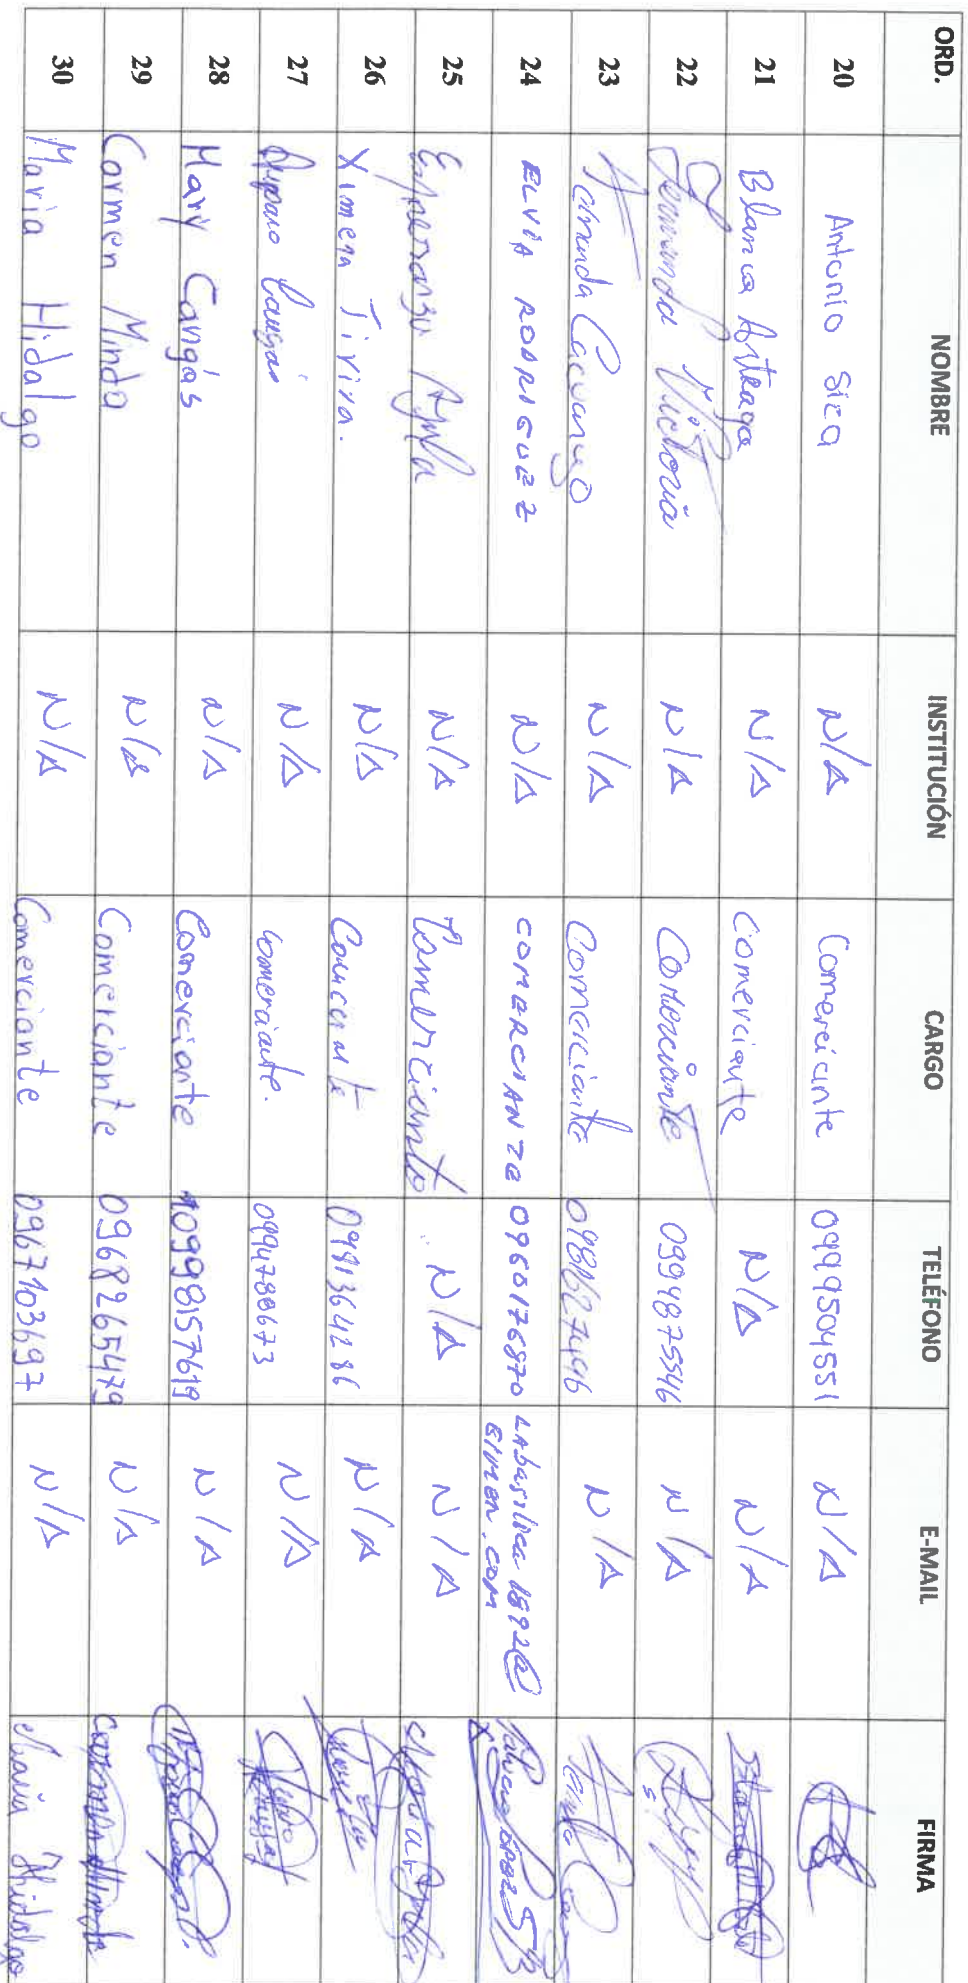 ORD. NOMBRE INSTITUCIÓN CARGO TELÉFONO E-MAIL FIRMA
20 Antonio Sica N/A Comerciante 0999504551 N/A
21 Blanca Arteaga N/A Comerciante N/A N/A
22 Fernanda Victoria N/A Comerciante 0994875546 N/A
23 Fernanda Cacuango N/A Comerciante N/A
24 ELVIA RODRIGUEZ N/A COMERCIANTE 0960176870 labasilica1892@
gmail.com
25 Esperanza Ayala N/A Comerciante N/A N/A
26 Ximena Tirira. N/A Comerciante 0981364286 N/A
27 Amparo Cangás N/A comerciante. 0994780673 N/A
28 Mary Cangás N/A Comerciante 0999157619 N/A
29 Carmen Minda N/A Comerciante 0968265479 N/A Carmen Minda
30 Maria Hidalgo N/A Comerciante 0967103697 N/A Maria Hidalgo